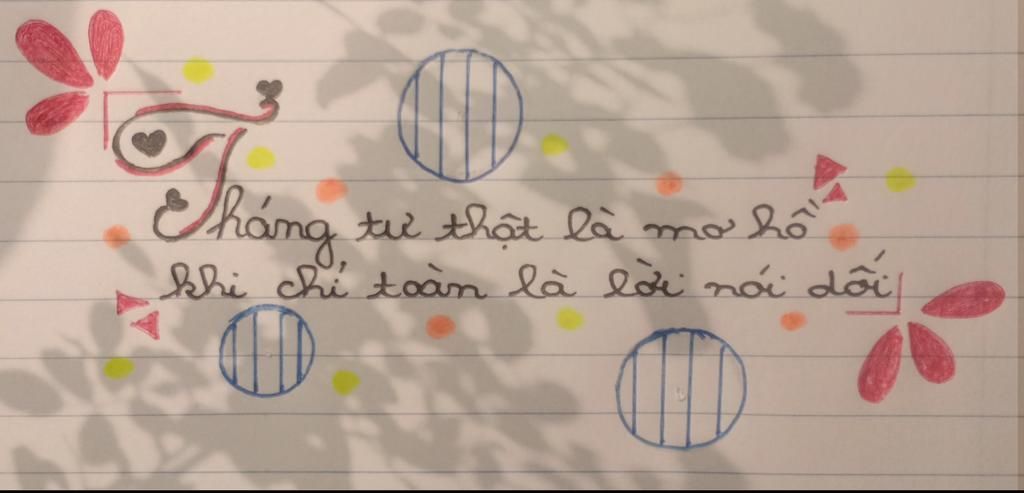 Tháng tư thật là mơ hồ
khi chỉ toàn là lời nói dối